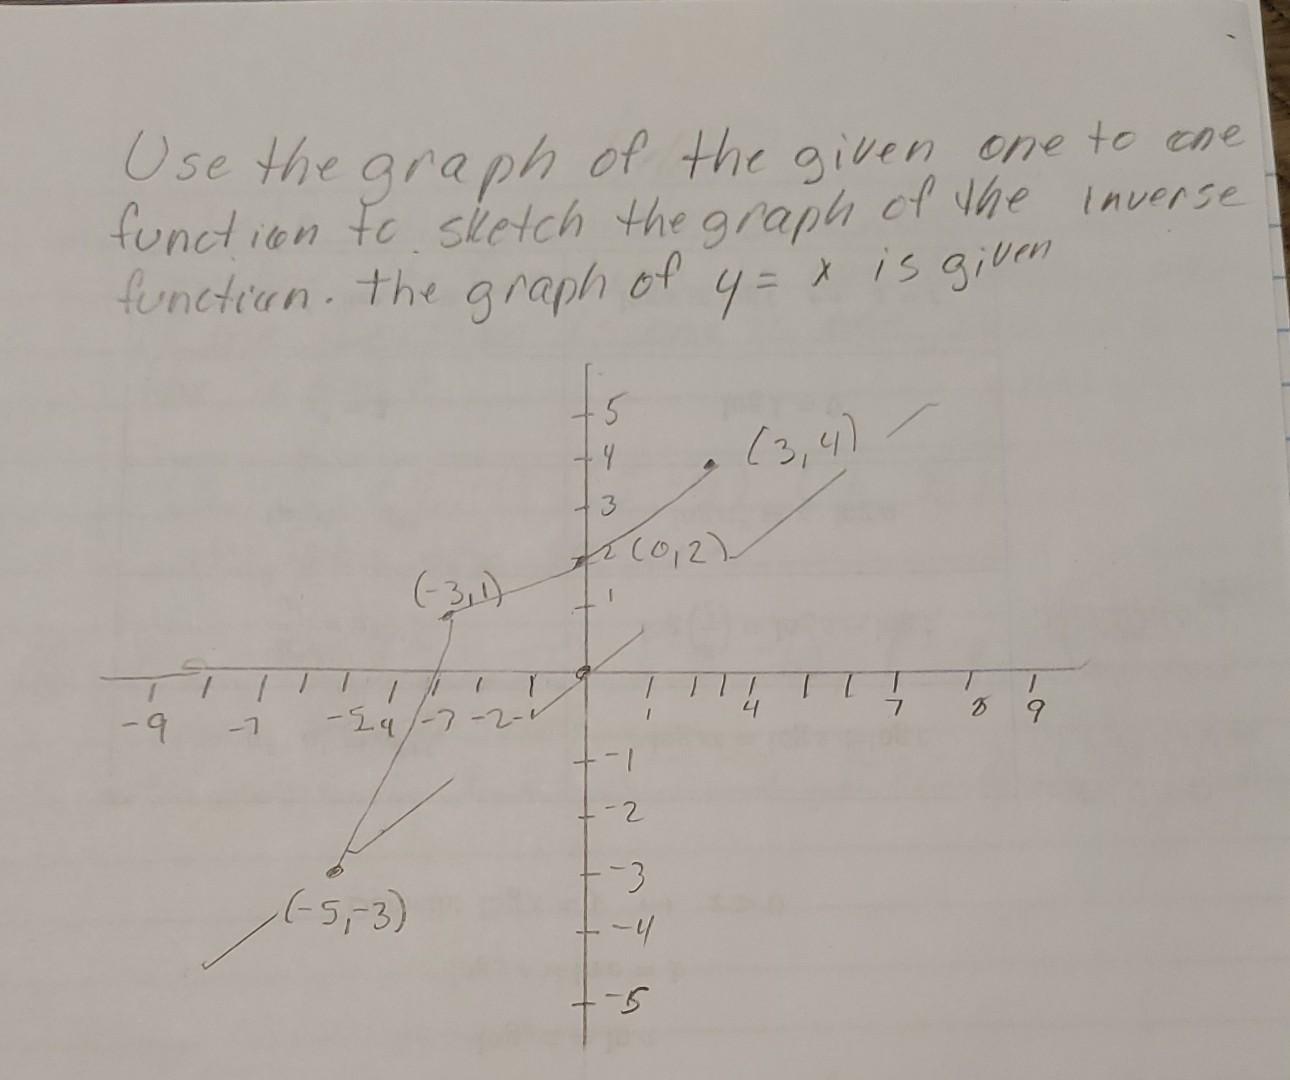 Use the graph of the given one to one
function to sketch the graph of the inverse
function. the graph of y = x is given
5
4
(3,4)
3
2 (0,2)
(-3,1)
1
-9 -7 -5 4 -3 -2 -1 1 4 7 8 9
-1
-2
-3
(-5,-3)
-4
-5